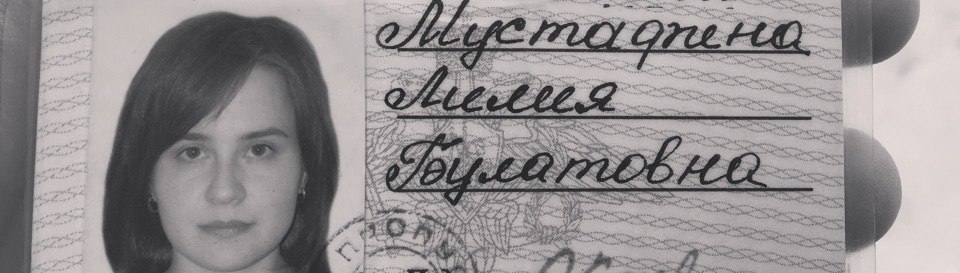 Мустафина
Лилия
Булатовна